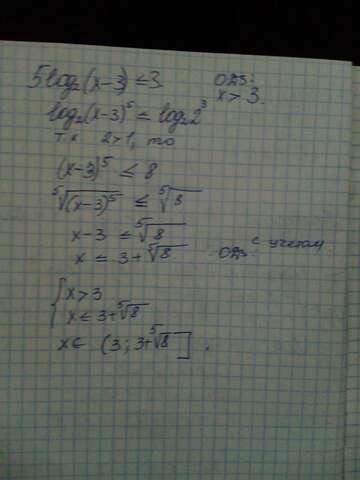 5log₂(x-3) ≤ 3 ОДЗ:
x > 3.
log₂(x-3)⁵ ≤ log₂2³
т.к 2>1, то
(x-3)⁵ ≤ 8
⁵√(x-3)⁵ ≤ ⁵√8
x-3 ≤ ⁵√8
x ≤ 3+⁵√8 с учетом ОДЗ
{ x>3
x ≤ 3+⁵√8
x∈ (3; 3+⁵√8].